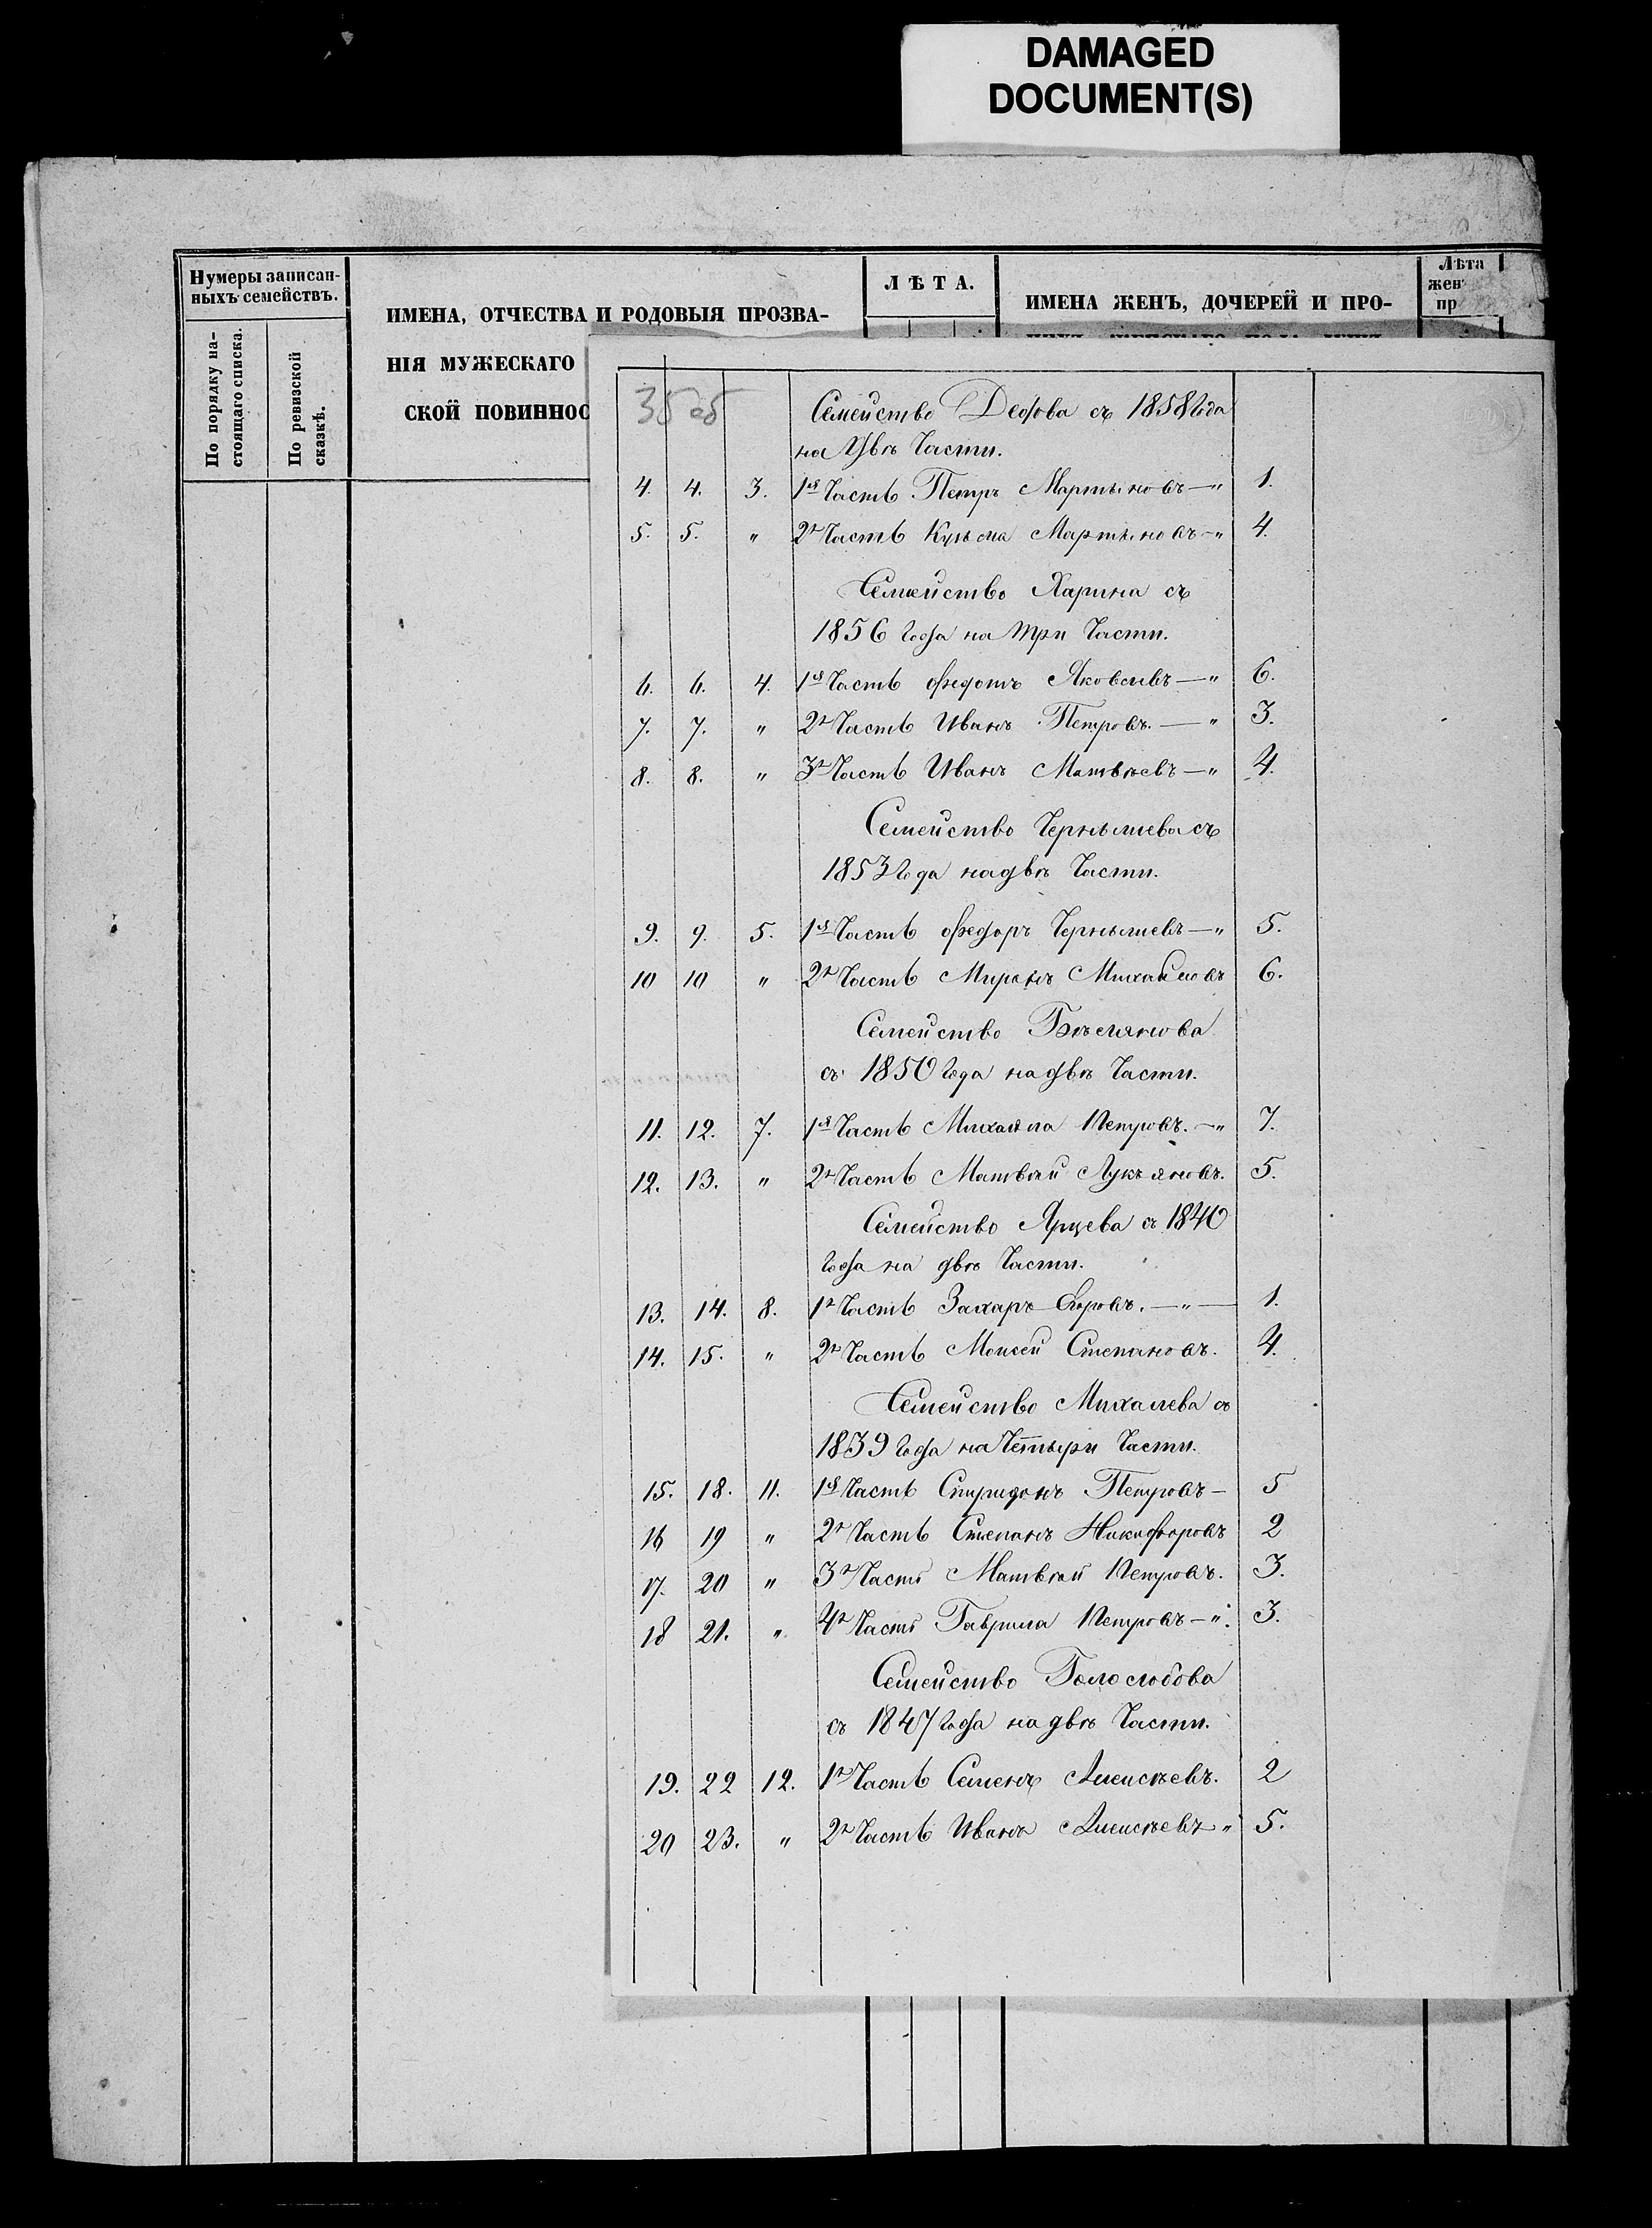 DAMAGED
DOCUMENT(S)
Нумеры записан-
ныхъ семействъ.
По порядку на-
стоящаго списка.
По ревизской
сказкѣ.
ИМЕНА, ОТЧЕСТВА И РОДОВЫЯ ПРОЗВА-
НІЯ МУЖЕСКАГО
СКОЙ ПОВИННОС
ЛѢТА.
ИМЕНА ЖЕНЪ, ДОЧЕРЕЙ И ПРО-
Лѣта
жен
пр
35 об
Семейство Дедова съ 1858 Года
на Двѣ Части.
4. 4. 3. 1я Часть Петръ Мартыновъ — " 1.
5. 5. " 2я Часть Кузьма Мартыновъ — " 4.
Семейство Харина съ
1856 Года на три Части.
6. 6. 4. 1я Часть Федотъ Яковлевъ — " 6.
7. 7. " 2я Часть Иванъ Петровъ. — " 3.
8. 8. " 3я Часть Иванъ Матвѣевъ — " 4.
Семейство Чернышева съ
1853 Года на двѣ Части.
9. 9. 5. 1я Часть Федоръ Чернышевъ — " 5.
10 10 " 2я Часть Миронъ Михайловъ 6.
Семейство
съ 1850 Года на двѣ Части.
11. 12. 7. 1я Часть Михайла Петровъ. — " 7.
12. 13. " 2я Часть Матвѣй Лукъяновъ. 5.
Семейство Ярцева съ 1840
Года на двѣ Части.
13. 14. 8. 1я Часть Захаръ — " — 1.
14. 15. " 2я Часть Моисей Степановъ. 4.
Семейство Михалева съ
1839 Года на Четыри Части.
15. 18. 11. 1я Часть Спиридонъ Петровъ — 5
16 19 " 2я Часть Степанъ Никифоровъ 2
17. 20 " 3я Часть Матвѣй Петровъ. 3.
18 21. " 4я Часть Гаврила Петровъ — " 3.
Семейство Голослобова
съ 1847 Года на двѣ Части.
19. 22 12. 1я Часть Семенъ Алексѣевъ. 2
20 23. " 2я Часть Иванъ Алексѣевъ " 5.